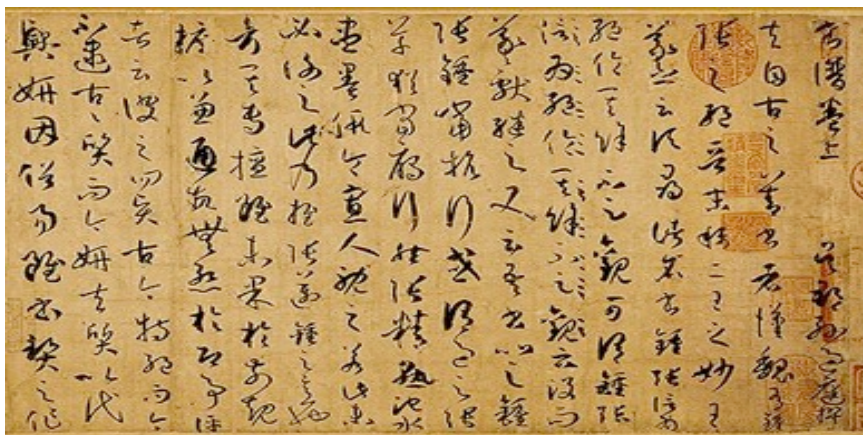 書譜卷上 吳郡孫過庭撰
夫自古之善書者漢魏有鍾
張之絕晉末稱二王之妙王
羲之云頃尋諸名書鍾張信為
絕倫其餘不足觀可謂鍾張
信為絕倫其餘不足觀云沒而
羲獻繼之又云吾書比之鍾
張鍾當抗行或謂過之張
草猶當雁行然張精熟池水
盡墨假令寡人耽之若此未
必謝之此乃推張邁鍾之意也
考其專擅雖未果於前規
摭以兼通故無慚於即事評
者云彼之四賢古今特絕而今
不逮古々質而今妍夫質以代
興妍因俗易雖書契之作